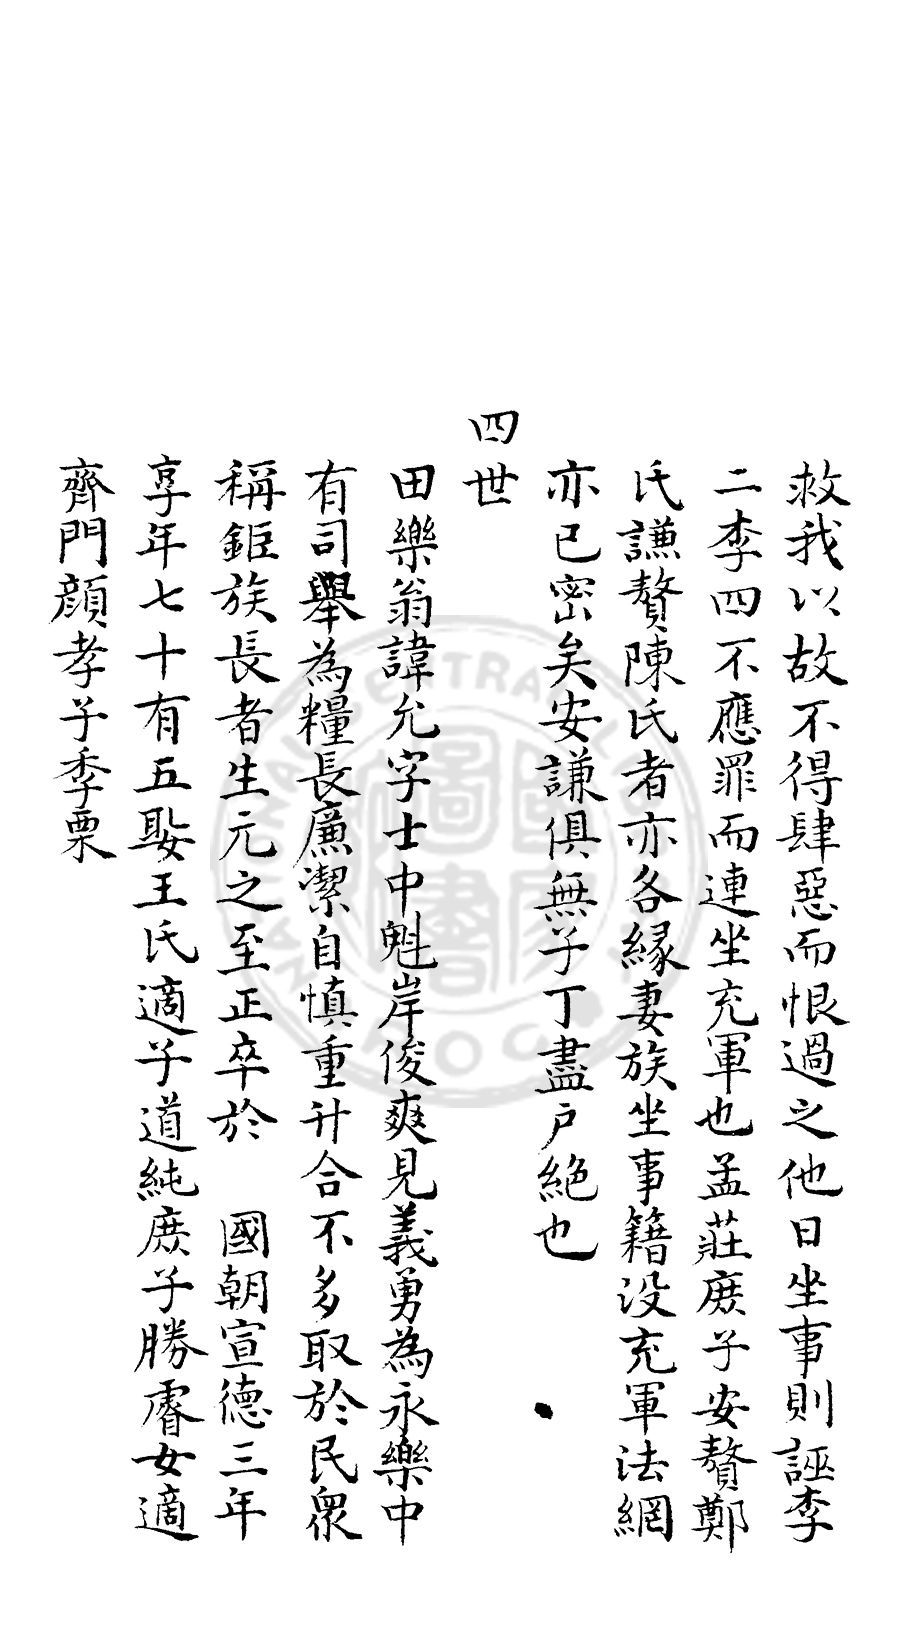 救我以故不得肆惡而恨過之他日坐事則誣李
二李四不應罪而連坐充軍也孟莊庶子安贅鄭
氏謙贅陳氏者亦各緣妻族坐事籍没充軍法網
亦已密矣安謙俱無子丁盡户絕也
四世
田樂翁諱允字士中魁岸俊爽見義勇為永樂中
有司舉為糧長廉潔自慎重升合不多取於民衆
稱鉅族長者生元之至正卒於 國朝宣德三年
享年七十有五娶王氏適子道純庶子勝睿女適
齊門顔孝子季栗